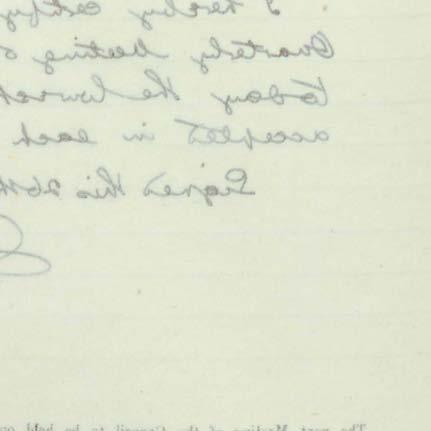 I hereby certify
Quarterly Meeting o
today the lowest
accepted in each
Signed this 26th
The next Meeting of the Council to be held on